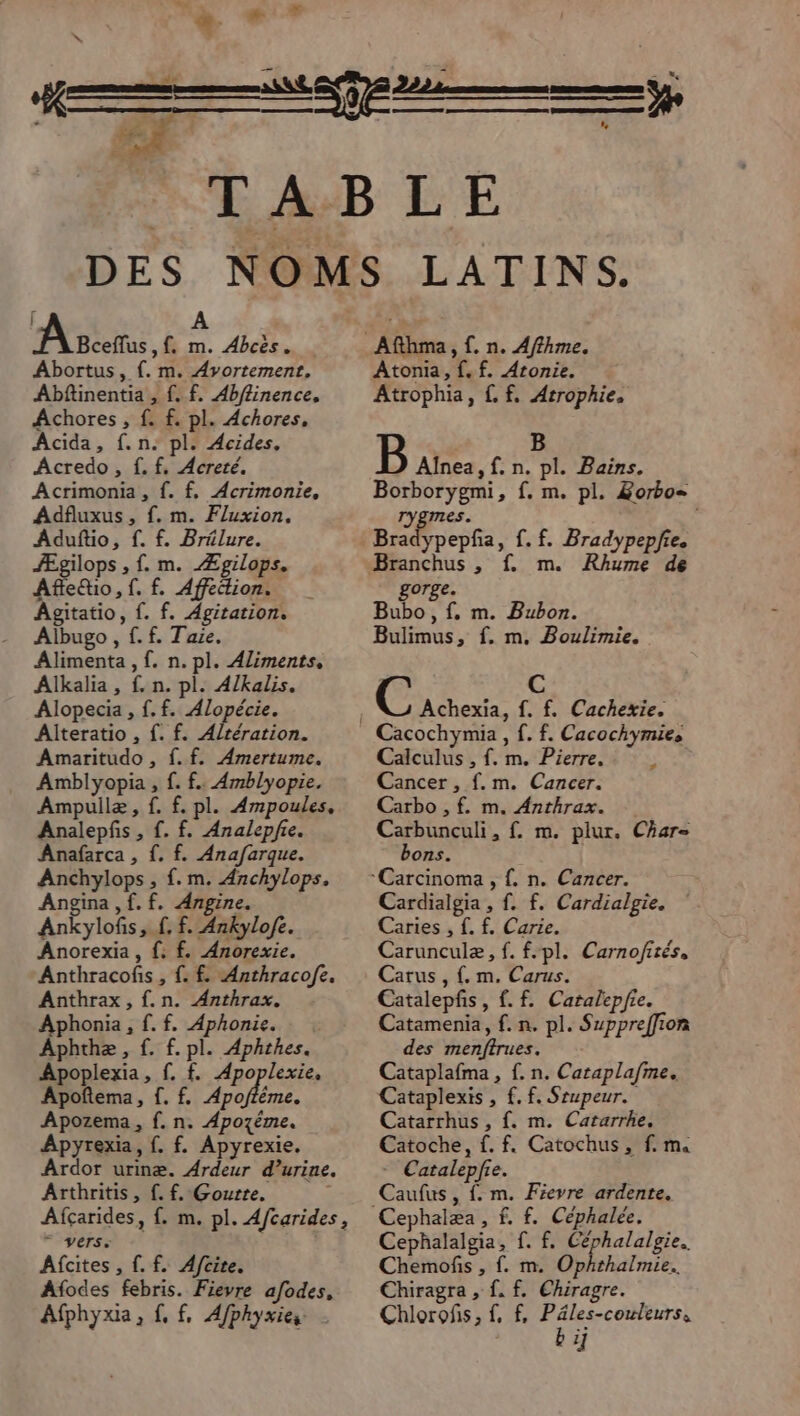 TABLE
DES NOMS LATINS.
A
ABceſſus, ſ. m. Abcès.
Abortus, ſ. m. Avortement.
Abſtinentia, ſ. f. Abſtinence.
Achores, ſ. f. pl. Achores.
Acida, ſ. n. pl. Acides.
Acredo, ſ. f. Acreté.
Acrimonia, ſ. f. Acrimonie.
Adfluxus, ſ. m. Fluxion.
Aduſtio, ſ. f. Brûlure.
Ægilops, ſ. m. Ægilops.
Affectio, ſ. f. Affection.
Agitatio, ſ. f. Agitation.
Albugo, ſ. f. Taie.
Alimenta, ſ. n. pl. Aliments.
Alkalia, ſ. n. pl. Alkalis.
Alopecia, ſ. f. Alopécie.
Alteratio, ſ. f. Altération.
Amaritudo, ſ. f. Amertume.
Amblyopia, ſ. f. Amblyopie.
Ampullæ, ſ. f. pl. Ampoules.
Analepſis, ſ. f. Analepſie.
Anaſarca, ſ. f. Anaſarque.
Anchylops, ſ. m. Anchylops.
Angina, ſ. f. Angine.
Ankyloſis, ſ. f. Ankyloſe.
Anorexia, ſ. f. Anorexie.
Anthracoſis, ſ. f. Anthracoſe.
Anthrax, ſ. n. Anthrax.
Aphonia, ſ. f. Aphonie.
Aphthæ, ſ. f. pl. Aphthes.
Apoplexia, ſ. f. Apoplexie.
Apoſtema, ſ. f. Apoſtéme.
Apozema, ſ. n. Apozéme.
Apyrexia, ſ. f. Apyrexie.
Ardor urinæ. Ardeur d'urine.
Arthritis, ſ. f. Goutte.
Aſcarides, ſ. m. pl. Aſcarides,
vers.
Aſcites, ſ. f. Aſcite.
Aſodes febris. Fievre aſodes.
Aſphyxia, ſ. f. Aſphyxie.
Aſthma, ſ. n. Aſthme.
Atonia, ſ. f. Atonie.
Atrophia, ſ. f. Atrophie.
B
BAlnea, ſ. n. pl. Bains.
Borborygmi, ſ. m. pl. Borbo-
rygmes.
Bradypepſia, ſ. f. Bradypepſie.
Branchus, ſ. m. Rhume de
gorge.
Bubo, ſ. m. Bubon.
Bulimus, ſ. m. Boulimie.
C
CAchexia, ſ. f. Cachexie.
Cacochymia, ſ. f. Cacochymie.
Calculus, ſ. m. Pierre.
Cancer, ſ. m. Cancer.
Carbo, ſ. m. Anthrax.
Carbunculi, ſ. m. plur. Char-
bons.
Carcinoma, ſ. n. Cancer.
Cardialgia, ſ. f. Cardialgie.
Caries, ſ. f. Carie.
Carunculæ, ſ. f. pl. Carnoſités.
Carus, ſ. m. Carus.
Catalepſis, ſ. f. Catalepſie.
Catamenia, ſ. n. pl. Suppreſſion
des menſtrues.
Cataplaſma, ſ. n. Cataplaſme.
Cataplexis, ſ. f. Stupeur.
Catarrhus, ſ. m. Catarrhe.
Catoche, ſ. f. Catochus, ſ. m.
Catalepſie.
Cauſus, ſ. m. Fievre ardente.
Cephalæa, ſ. f. Céphalée.
Cephalalgia, ſ. f. Céphalalgie.
Chemoſis, ſ. m. Ophthalmie.
Chiragra, ſ. f. Chiragre.
Chloroſis, ſ. f. Pâles-couleurs.
b ij